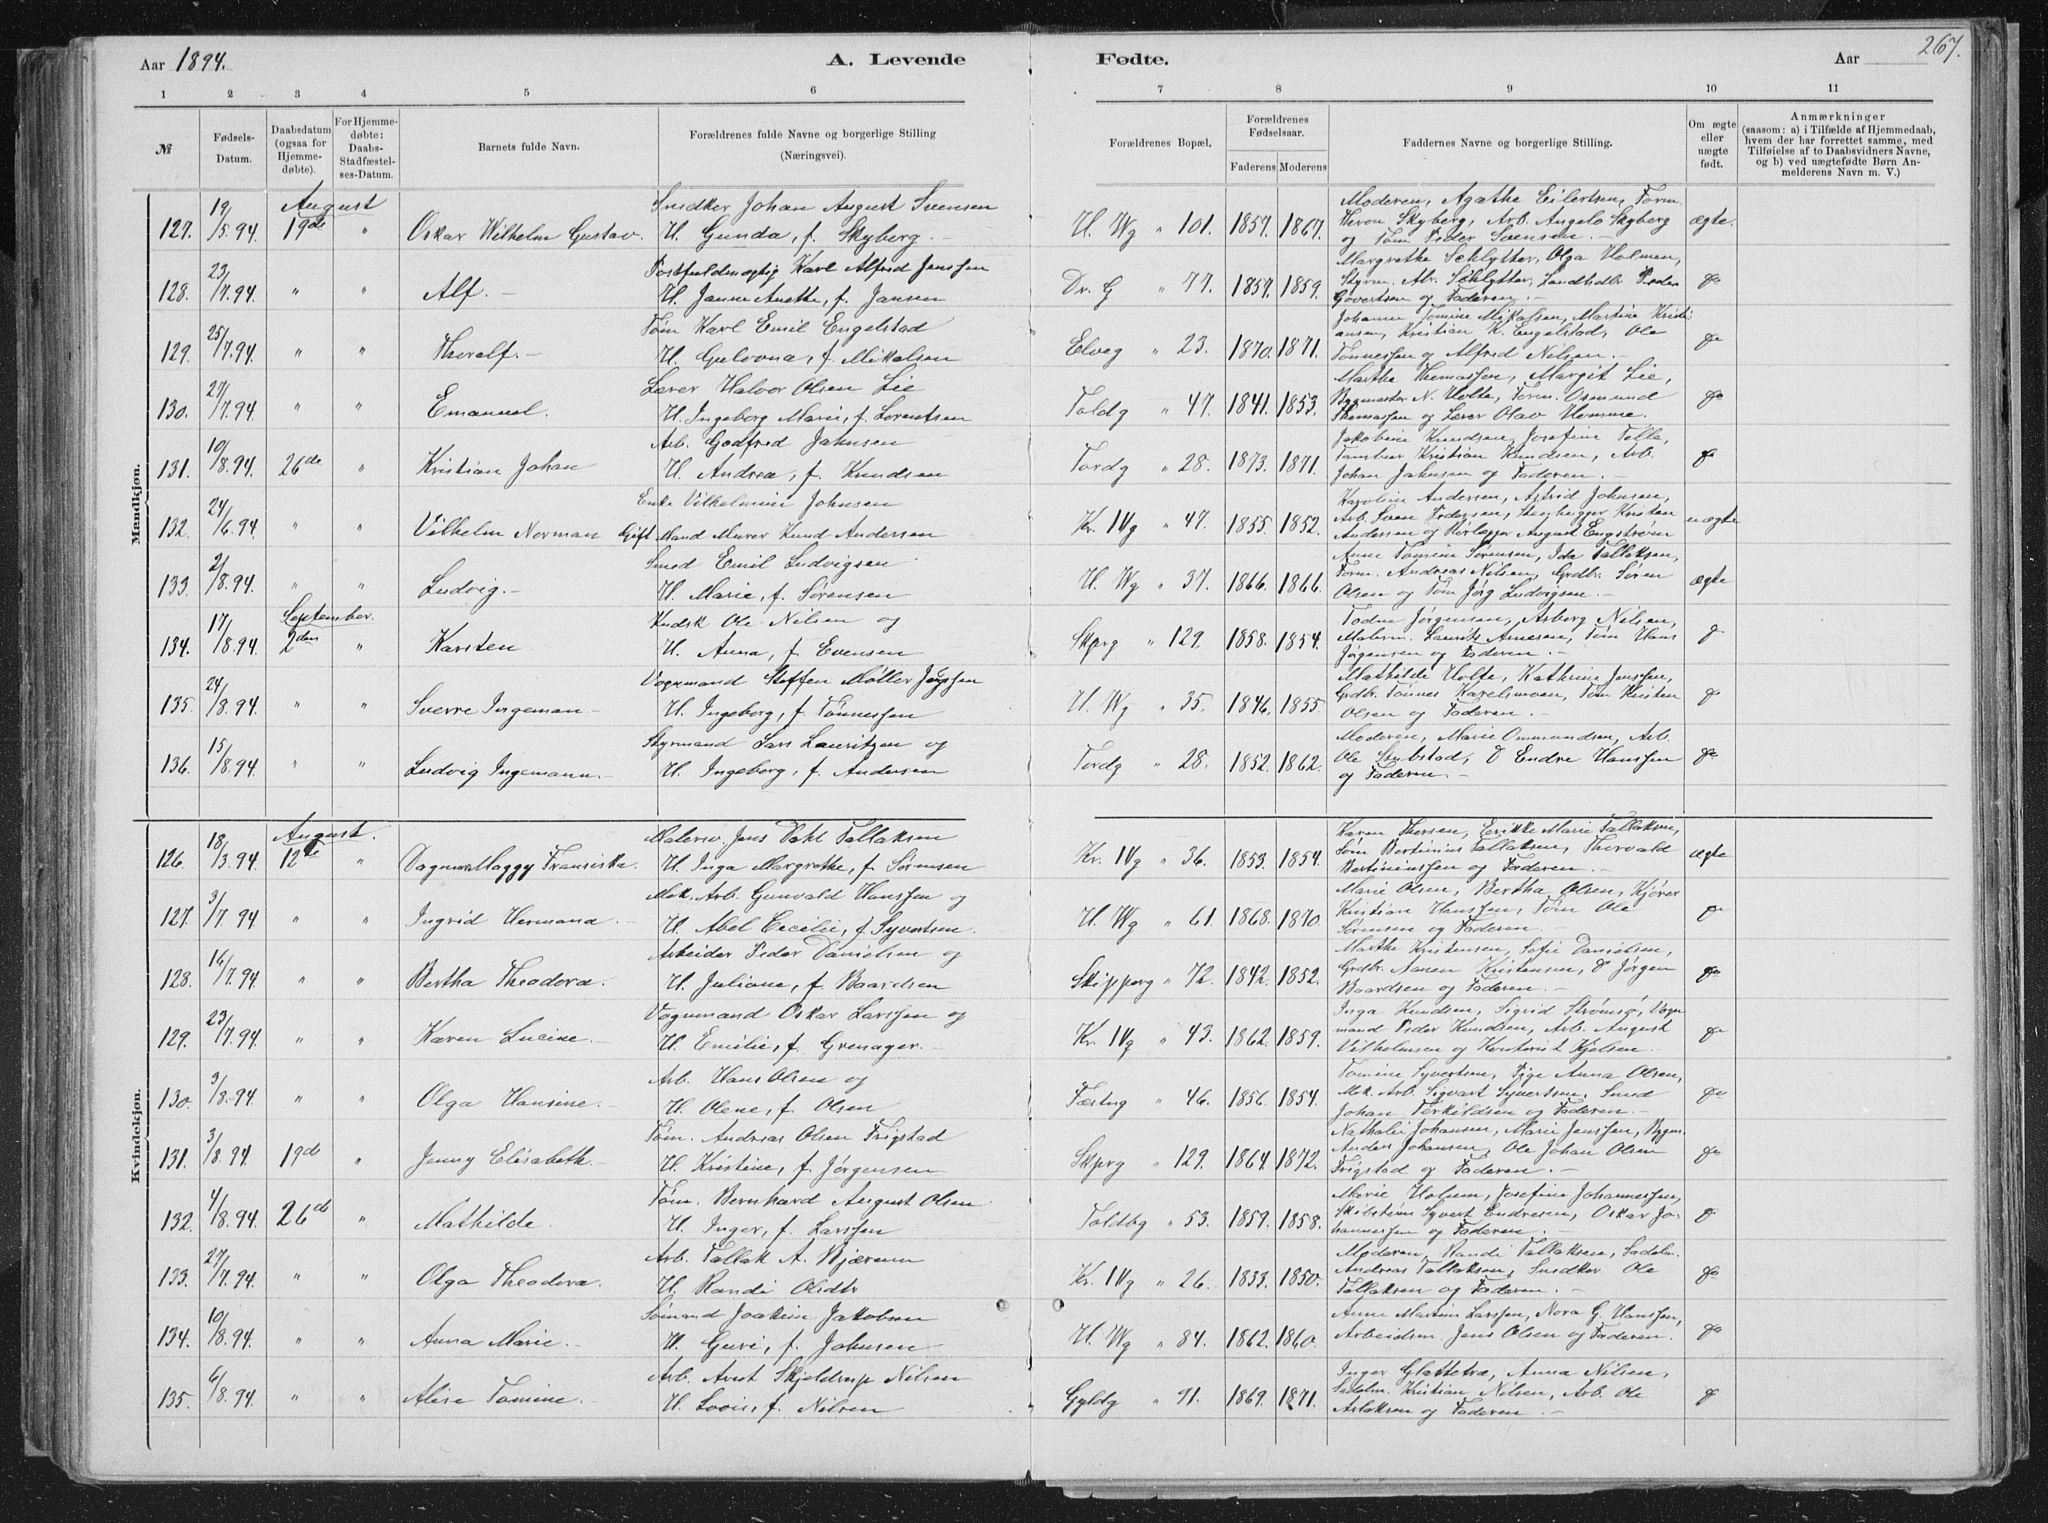 Aar 1894.
A. Levende Fødte.
Aar
267.
1 2 3 4 5 6 7 8 9 10 11
№
Fødsels-Datum.
Daabsdatum (ogsaa for Hjemme-døbte).
For Hjemme-døbte: Daabs-Stadfæstel-ses-Datum.
Barnets fulde Navn.
Forældrenes fulde Navne og borgerlige Stilling (Næringsvei).
Forældrenes Bopæl.
Forældrenes Fødselsaar.
Faderens Moderens
Faddernes Navne og borgerlige Stilling.
Om ægte eller uægte født.
Anmærkninger
(saasom: a) i Tilfælde af Hjemmedaab, hvem der har forrettet samme, med Tilføielse af to Daabsvidners Navne, og b) ved uægtefødte Børn An-melderens Navn m. V.)
Mandkjøn.
August
127. 19/5.94. 19de " Oskar Wilhelm Gustav. Snedker Johan August Svensen
H. Gunda, f. Skyberg.
H. Wg " 101. 1857. 1867. Moderen, Agathe Eilertsen, Form.
Skyberg, Arb. Angelo Skyberg
og Tøm Peder Svensen.
ægte.
128. 23/7.94. " " Alf. Postfuldmægtig Karl Alfred Jenssen
H. Janne Anette, f. Jansen
Dr. G " 77. 1857. 1859. Margrethe Schlytter, Olga Holmen,
Styrm. Alr. Schlytter, Landhdlr Peder
Govertsen og Faderen.
129. 25/7.94. " " Thoralf. Tøm Karl Emil Engelstad
H. Gulovna, f. Mikalsen
Elveg " 23. 1870. 1871. Johanne Tomine Mikalsen, Martine Kristi
ansen, Kristian K. Engelstad, Ole
Tønnessen og Alfred Nilsen.
130. 27/7.94. " " Emanuel. Lærer Halvor Olsen Lie
H. Ingeborg Marie, f. Lorentsen
Toldg " 47. 1841. 1853. Marthe Thomassen, Margit Lie,
Bygmester N. Holte, Form. Osmund
Thomassen og Lærer Olav Homme.
131. 10/8.94. 26de " Kristian Johan Arb. Godfred Jahnsen
H. Andrea, f. Knudsen
Tordg " 28. 1873. 1871. Jakobine Knudsen, Josefine Felle,
Tambur Kristian Knudsen, Arb.
Johan Jahnsen og Faderen.
132. 24/6.94. " " Vilhelm Norman Enke Vilhelmine Johnsen
Gift Mand Murer Knud Andersen
Kr. IVg " 47. 1855. 1852. Karoline Andersen, Astrid Johnsen,
Arb. Sven Pedersen, Skibygger Kristen
Andersen og August Engstrøm
uægte
133. 2/8.94. " " Ludvig. Smed Emil Ludvigsen
H. Marie, f. Sørensen
H. Wg " 37. 1866. 1866. Anne Tomine Sørensen, Ida Tallaksen,
Form. Andreas Nilsen, Grdbr. Søren
Olsen og Tøm Jørg Ludvigsen.
ægte
September.
134. 17/8.94. 2den " Karsten Kudsk Ole Nilsen og
H. Anna, f. Evensen
Skprg " 129. 1858. 1854. Jørgensen, Asborg Nilsen,
Malerm. Laurits Arnesen, Tøm Hans
Jørgensen og Faderen.
135. 24/8.94. " " Sverre Ingeman. Vognmand Steffen Møller Jepsen
H. Ingeborg, f. Tønnessen
H. Wg " 35. 1846. 1855. Mathilde Holte, Kathrine Jenssen,
Grdbr. Tønnes Tøm Kristen
Olsen og Faderen.
136. 15/8.94. " " Ludvig Ingemann. Styrmand Lars Lauritzen og
H. Ingeborg, f. Andersen
Tordg " 28. 1852. 1862. Moderen, Marie Ommundsen, Arb.
Ole Stubstad, D Endre Hanssen
og Faderen.
Kvindekjøn.
August.
126. 18/3.94. 12te " Dagmar Maggy Fransiska. Malersv. Jens Dahl Tallaksen
H. Inga Margrethe, f. Sørensen
Kr. IVg " 36. 1853. 1854. Karen Thorsen, Erikke Marie Tallaksen,
Søm Bertinius Tallaksen, Thorvald
Bertiniussen og Faderen.
ægte
127. 3/7.94. " " Ingrid Hermana. Mek. Arb. Gunvald Hanssen og
H. Abel Cecilie, f. Syvertsen.
H. Wg " 61. 1868. 1870. Marie Olsen, Bertha Olsen, Kjører
Kristian Hanssen, Tøm Ole
Sørensen og Faderen.
128. 16/7.94. " " Bertha Theodora. Arbeider Peder Danielsen og
H. Juliane, f. Baardsen
Skipperg " 72. 1842. 1852. Marthe Kristensen, Sofie Danielsen,
Grdbr. Nanen Kristensen, D Jørgen
Baardsen og Faderen.
129. 23/7.94. " " Karen Lucine. Vognmand Oskar Larssen og
H. Emilie, f. Grenager.
Kr. IVg " 43. 1862. 1859. Inga Knudsen, Sigrid Strømsø, Vogn
mand Peder Knudsen, Arb. August
Vilhelmsen og Kontorist Kjelsen.
130. 3/8.94. " " Olga Hansine. Arb. Hans Olsen og
H. Olene, f. Olsen
Fæstng " 46. 1856. 1854. Tomine Syvertsen, Pige Anna Olsen,
Mek. Arb. Sigvart Syvertsen, Smed
Johan Terkildsen og Faderen.
131. 3/8.94. 19de " Jenny Elisabeth. Tøm. Andreas Olsen Frigstad
H. Kristine, f. Jørgensen
Skprg " 129. 1864. 1872. Nathalie Johansen, Marie Jenssen, Bygm.
Anders Johansen, Ole Johan Olsen
Frigstad og Faderen.
132. 4/8.94. 26de " Mathilde. Tøm. Bernhard August Olsen
H. Inger, f. Larssen
Toldbg " 53. 1859. 1858. Marie Holum, Josefine Johannessen,
Skibstim Syvert Endresen, Oskar Jo-
hannessen og Faderen.
133. 27/7.94. " " Olga Theodora. Arb. Tallak A. Bjærum
H. Randi Olsdtr
Kr. IVg " 26. 1833. 1850. Moderen, Randi Tallaksen, Sadelm.
Andreas Tallaksen, Snedker Ole
Tallaksen og Faderen.
134. 10/8.94. " " Anna Marie. Sømand Joakim Jakobsen
H. Guri, f. Johnsen
H. Wg " 84. 1862. 1860. Anne Martine Larssen, Nora G. Hanssen,
Arbeidsm. Jens Olsen og Faderen.
135. 6/8.94. " " Alise Tomine. Arb. Arnt Skjeldrup Nilsen
H. Lovis, f. Nilsen
Gyldg " 11. 1869. 1871. Inger Glattetræ, Anna Nilsen,
Sadelm. Kristian Nilsen, Arb. Ole
Aslaksen og Faderen.